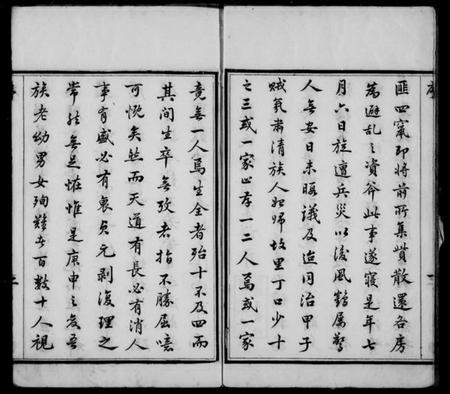 匪四竄即將前所集貲散還各房
為避乱之資斧此事遂寢是年七
月六日族遭兵災以後風鶴屬驚
人無安日未暇議及造同治甲子
賊氛肅清族人始归故里丁口少十
之三或一家止存一二人焉或一家
竟無一人焉生全者殆十不及四而
其间生卒無攷者指不勝屈噫
可慨矣然而天道有長必有消人
事有盛必有衰貞元剥復理之
常然無足怪惟是庚申之變吾
族老幼男女殉難者百數十人視